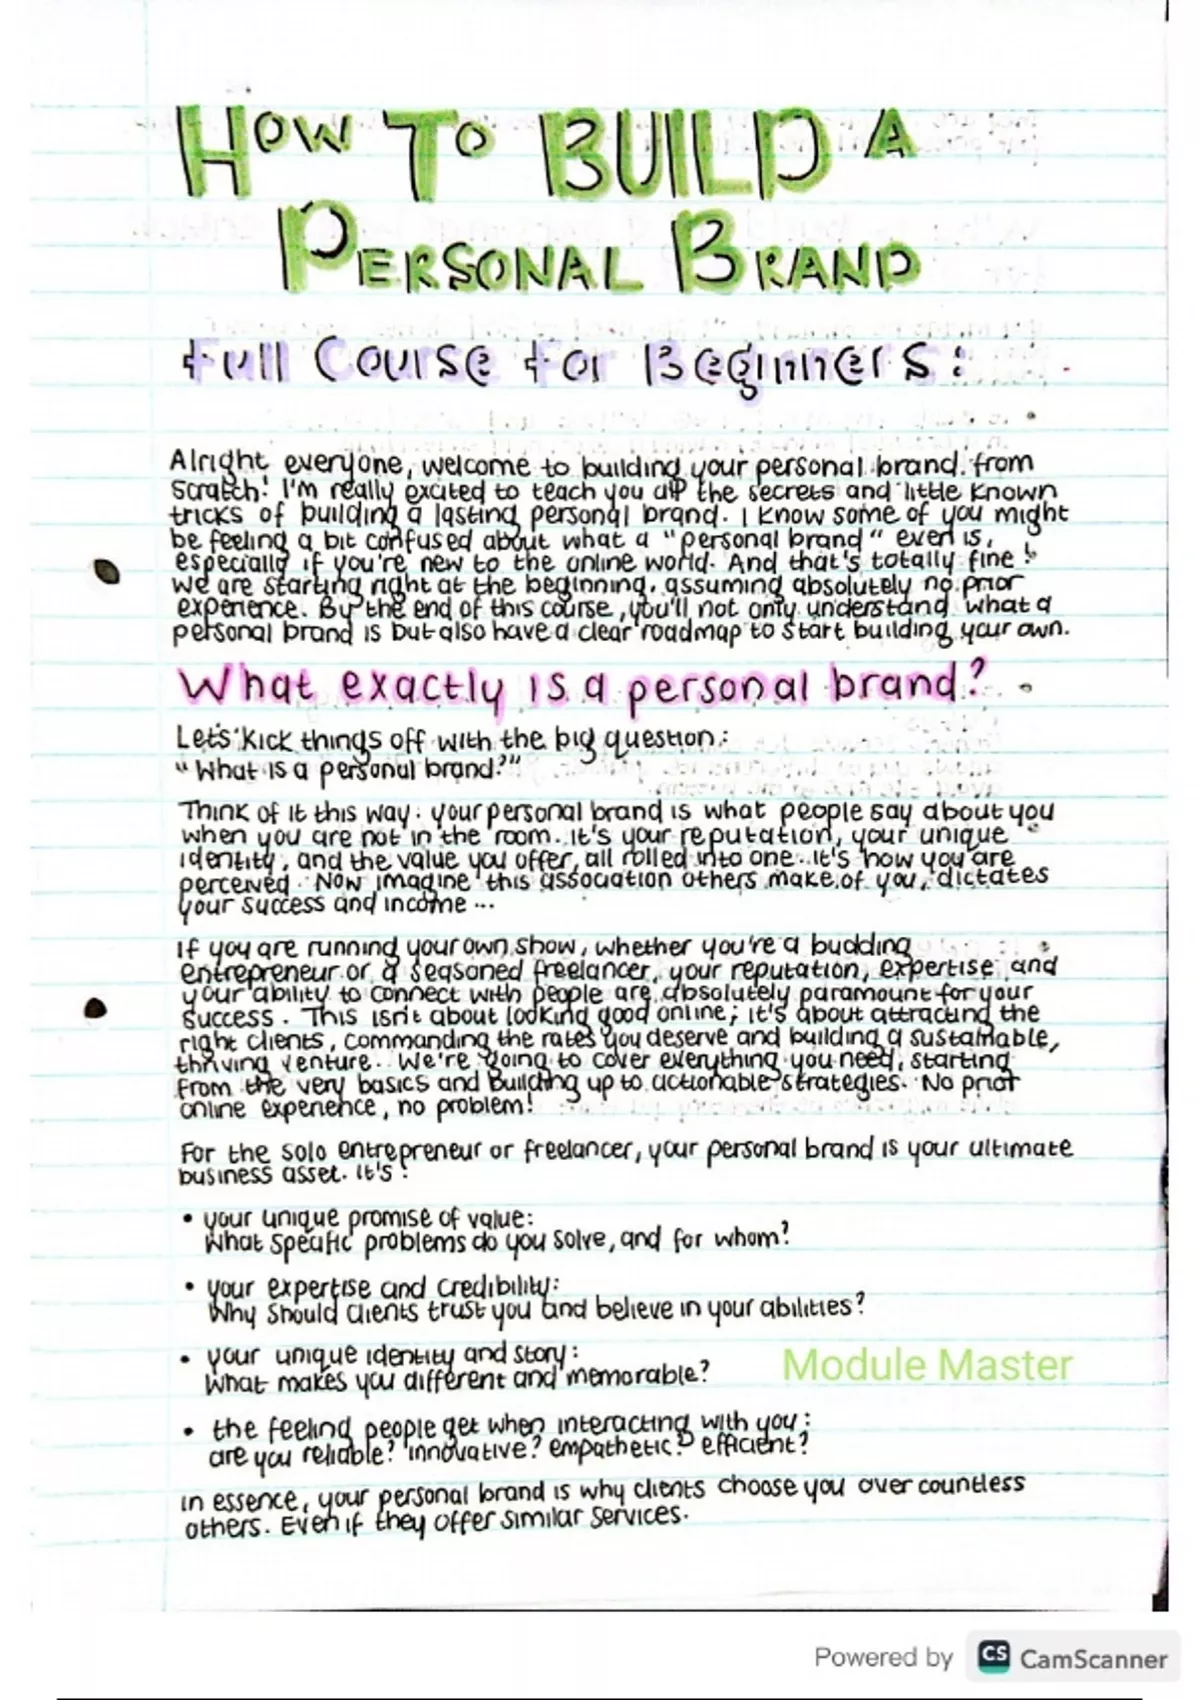 HOW TO BUILD A
PERSONAL BRAND
Full Course for Beginners:
Alright everyone, welcome to building your personal brand. from
scratch! I'm really excited to teach you all the secrets and little known
tricks of building a lasting personal brand. I know some of you might
be feeling a bit confused about what a "personal brand" even is,
especially if you're new to the online world. And that's totally fine!
We are starting right at the beginning, assuming absolutely no prior
experience. By the end of this course, you'll not only understand what a
personal brand is but also have a clear roadmap to start building your own.
What exactly is a personal brand?
Let's kick things off with the big question:
"What is a personal brand?"
Think of it this way: your personal brand is what people say about you
when you are not in the room. It's your reputation, your unique
identity, and the value you offer, all rolled into one. It's how you are
perceived. Now imagine this association others make of you, dictates
your success and income ...
If you are running your own show, whether you're a budding
entrepreneur or a seasoned freelancer, your reputation, expertise and
your ability to connect with people are absolutely paramount for your
success. This isn't about looking good online; it's about attracting the
right clients, commanding the rates you deserve and building a sustainable,
thriving venture. We're going to cover everything you need, starting
from the very basics and building up to actionable strategies. No prior
online experience, no problem!
For the solo entrepreneur or freelancer, your personal brand is your ultimate
business asset. It's:
• your unique promise of value:
What specific problems do you solve, and for whom?
• your expertise and credibility:
Why should clients trust you and believe in your abilities?
• your unique identity and story:
What makes you different and memorable?
Module Master
• the feeling people get when interacting with you:
are you reliable? innovative? empathetic? efficient?
In essence, your personal brand is why clients choose you over countless
others. Even if they offer similar services.
Powered by CS CamScanner